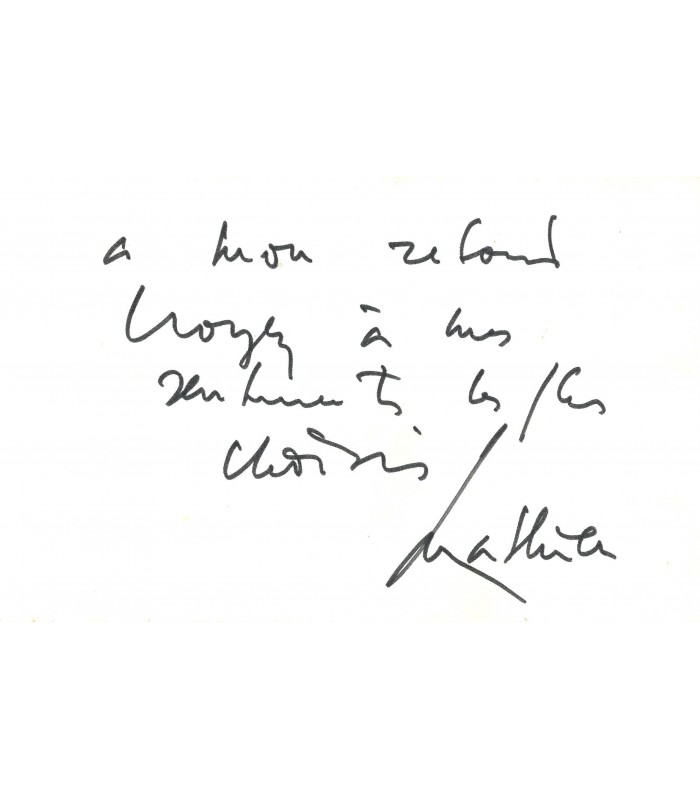 a mon retour
Croyez à mes
sentiments les plus
choisis
Mathieu